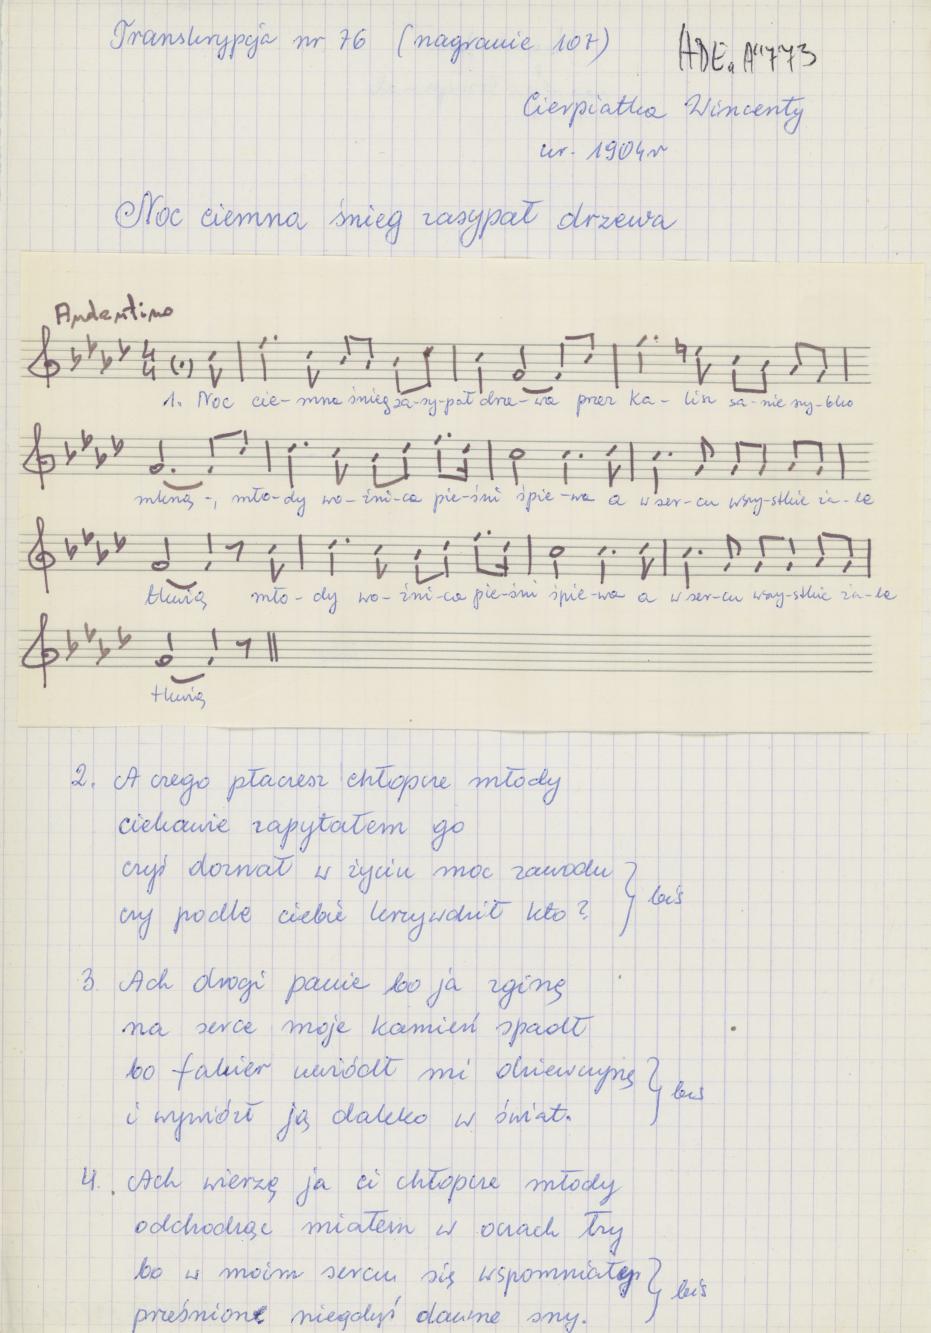 Transkrypcja nr 76 (nagranie 107)
ADE. A"773
Cierpiatka Wincenty
ur. 1904r
Noc ciemna śnieg zasypał drzewa
Andantino
1. Noc cie-mna śnieg za-sy-pał drze-wa przez Ka-lisz sa-nie szy-bko
mkną-, mło-dy wo-źni-ca pie-śni śpie-wa a w ser-cu wszy-stkie ża-le
tkwią mło-dy wo-źni-ca pie-śni śpie-wa a w ser-cu wszy-stkie ża-le
tkwią
2. A czego płaczesz chłopcze młody
ciekawie zapytałem go
czyś doznał w życiu moc zawodu
czy podle ciebie krzywdził kto? } bis
3. Ach drogi panie bo ja zginę
na serce moje kamień spadł
bo fakier uwiódł mi dziewczynę
i wywiózł ją daleko w świat. } bis
4. Ach wierzę ja ci chłopcze młody
odchodząc miałem w oczach łzy
bo w moim sercu się
prześnione niegdyś dawne sny. } bis